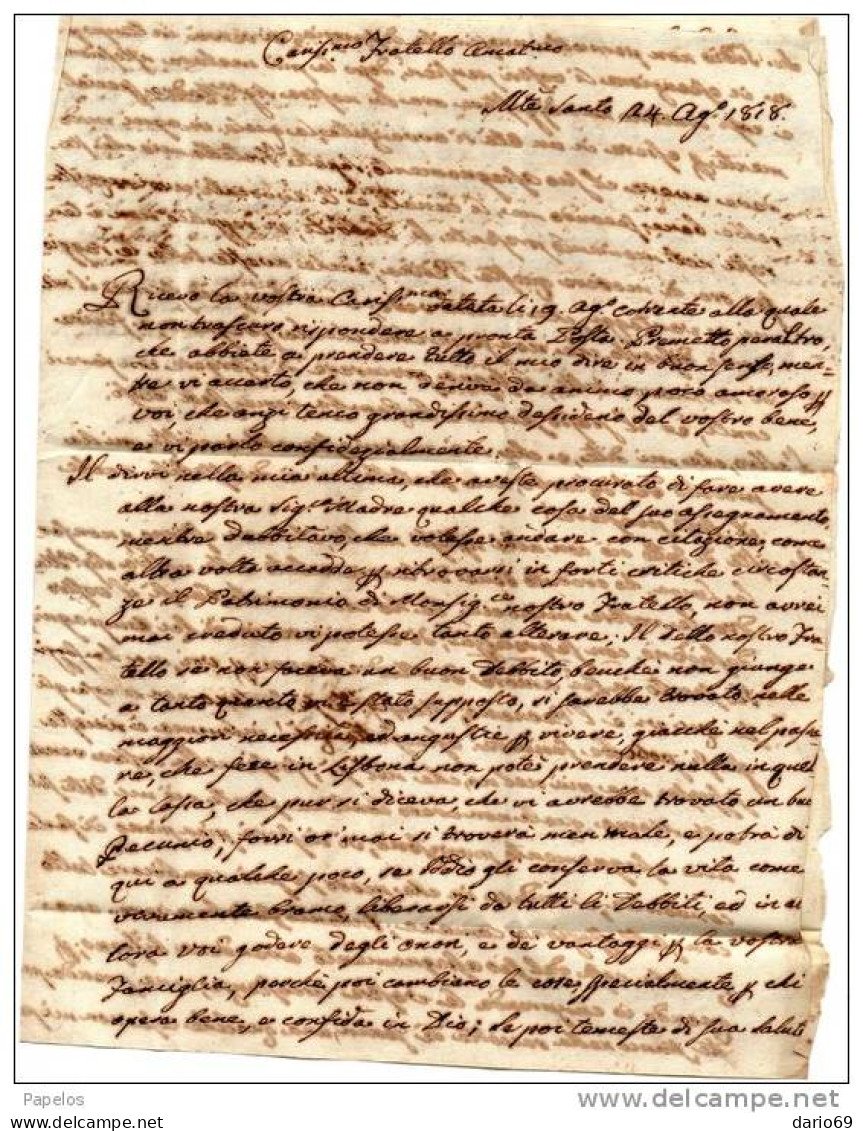 Caris.mo Fratello Amat.mo
Mte Santo 24. Ag.o 1818.
Ricevo la vostra Cariss.ma datata li 19. ag.o corrente alla quale
non trascuro rispondere a pronta Posta. Premetto peraltro,
che abbiate a prendere tutto il mio dire in buon senso, men-
tre vi accerto, che non deriva da animo poco amoroso p
voi, che anzi tengo grandissimo dessiderio del vostro bene,
e vi parlo confidezialmente.
Il dirvi nella mia ultima, che aveste procurato di fare avere
alla nostra Sig.a Madre qualche cosa del suo assegnamento,
mentre dubbitavo, che volesse andare con citazione, come
altra volta accadde, p ritrovarsi in forti critiche circostan
ze il Patrimonio di Monsig.re nostro Fratello, non avrei
mai creduto vi potesse tanto alterare; Il detto nostro Fra
tello se non faceva un buon Debbito, benchè non giunge
a tanto quanto mi è stato supposto, si sarebbe trovato nelle
maggiori necessità, ed angustie p vivere, giacchè nel passa-
re, che fece in Lisbona non potè prendere nulla in quel
la Casa, che pur si diceva, che vi avrebbe trovato un buon
Pecunio; forsi or mai si troverà men male, e potrà di
qui a qualche poco, se Iddio gli conserva la vita come
vivamente bramo, liberarsi da tutti li Debbiti, ed in al
lora voi godere degli onori, e de' vantaggi p la vostra
Famiglia, perchè poi cambiano le cose specialmente p chi
opera bene, e confida in Dio; Se poi temeste di sua salute
Papelos
delcampe.net
dario69